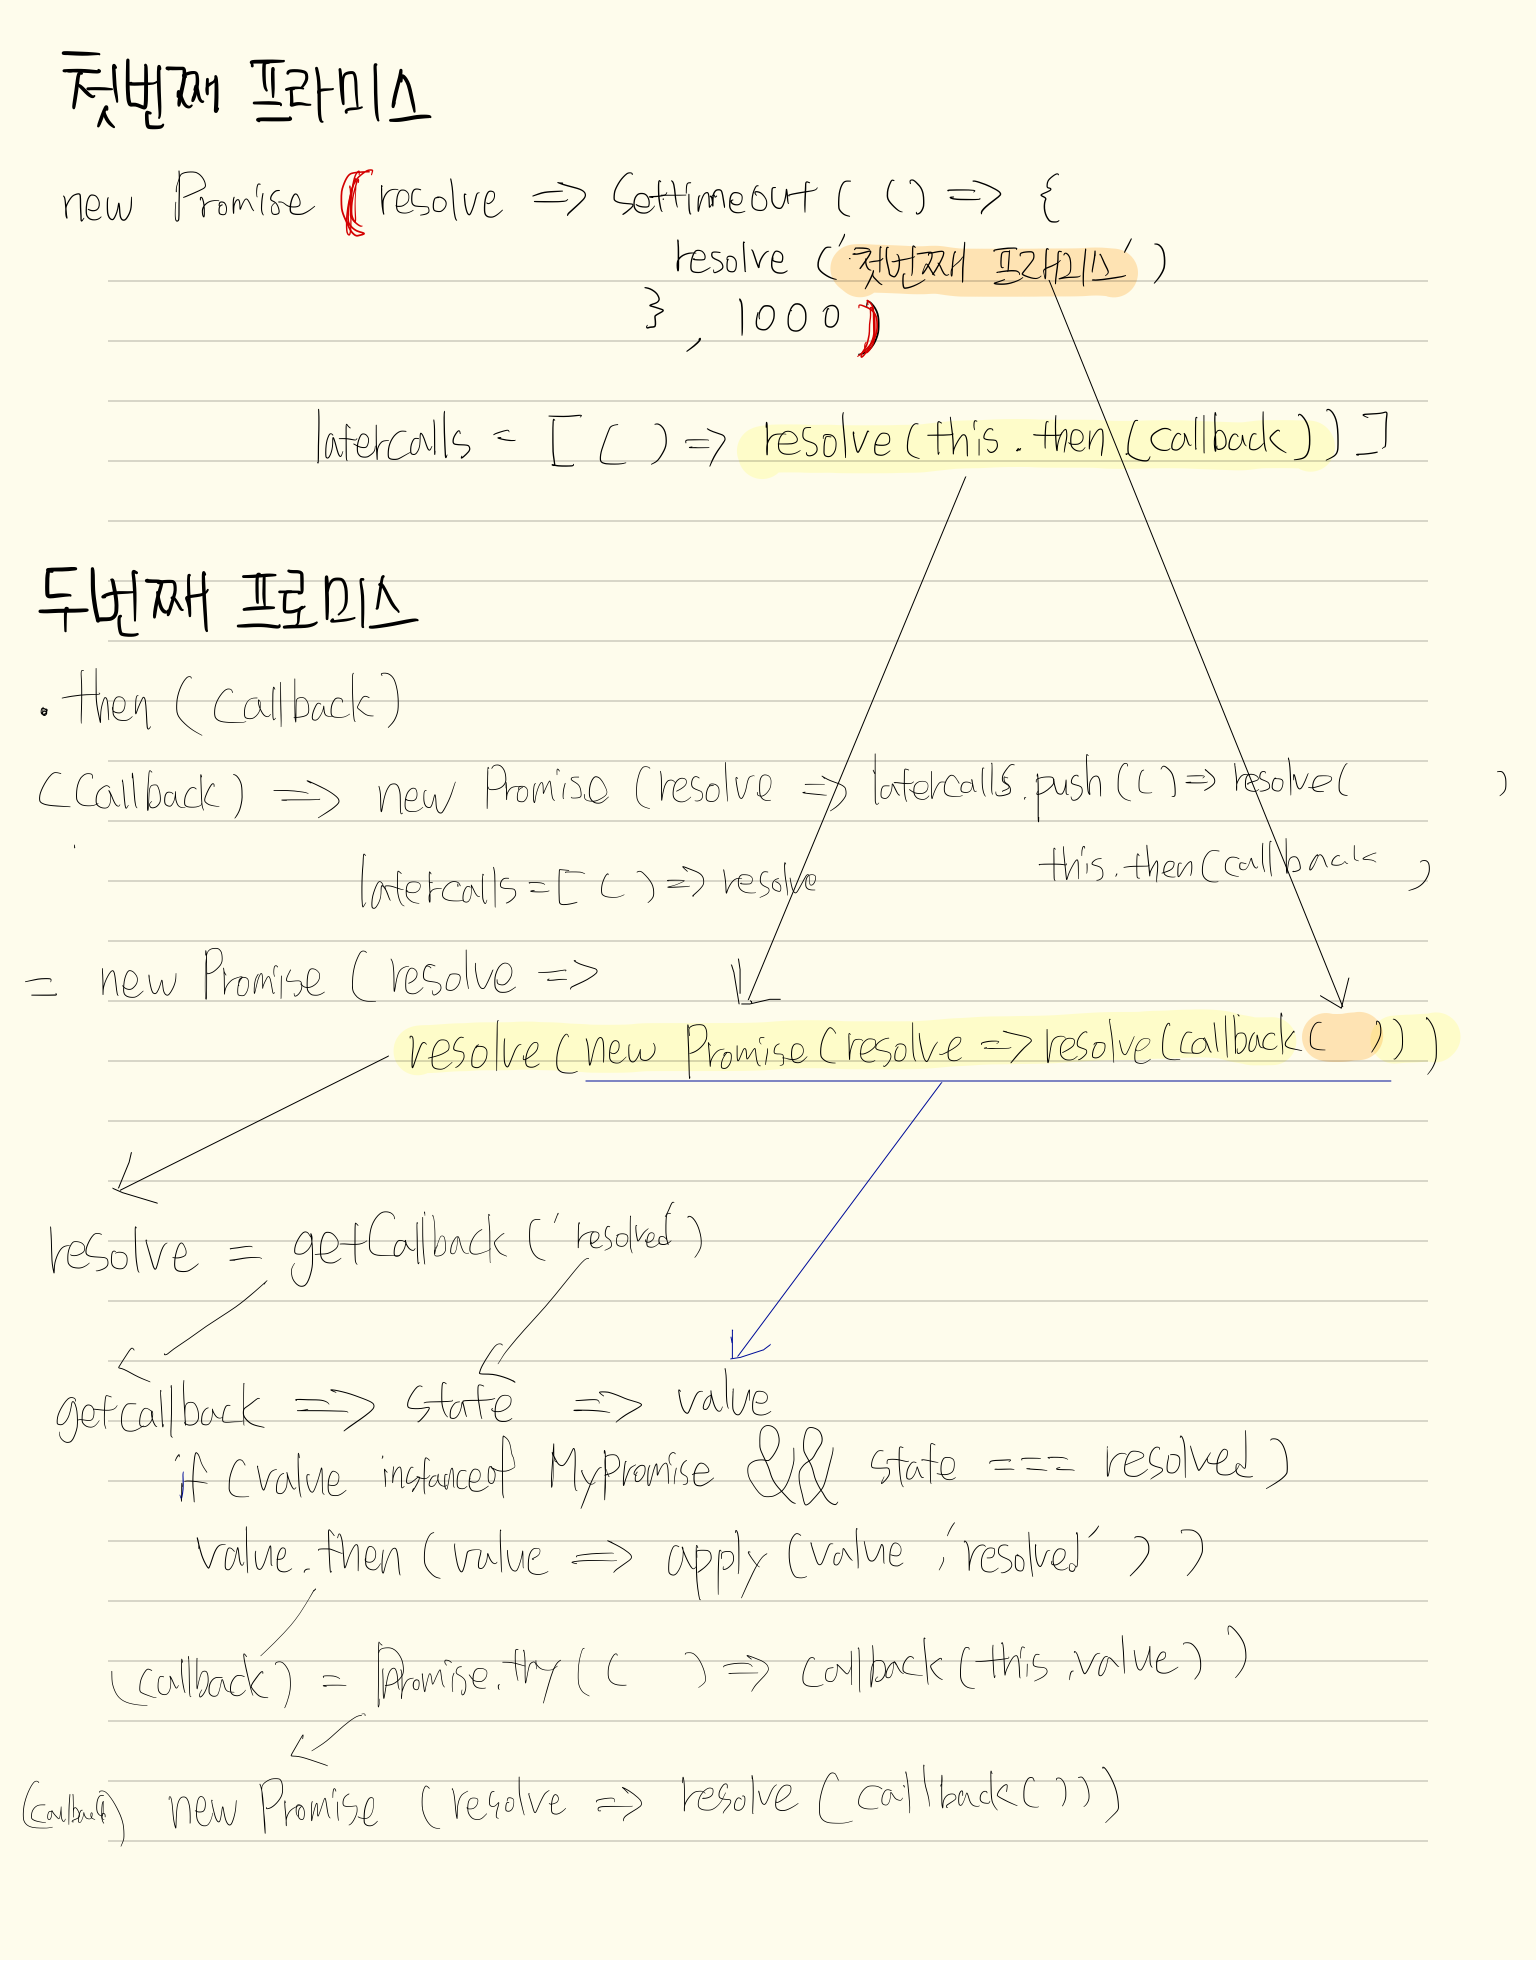 첫번째 프라미스
new Promise (resolve => Settimeout ( () => {
resolve ('첫번째 프라미스')
} , 1000 )
latercalls = [ ( ) => resolve (this . then (callback) ) ]
두번째 프로미스
. then ( callback )
(Callback) => new Promise (resolve => latercalls.push ( ( ) => resolve ( )
this.then (callback )
latercalls = [ ( ) => resolve
= new Promise ( resolve =>
resolve ( new Promise ( resolve => resolve (callback ( ) ) )
resolve = getCallback ( 'resolved' )
getcallback => state => value
if ( value instanceof MyPromise && state === resolved )
value.then ( value => apply (value , 'resolved' ) )
(callback) = Promise.try ( ( ) => callback (this .value ) )
(callback) new Promise (resolve => resolve ( callback ( ) ) )